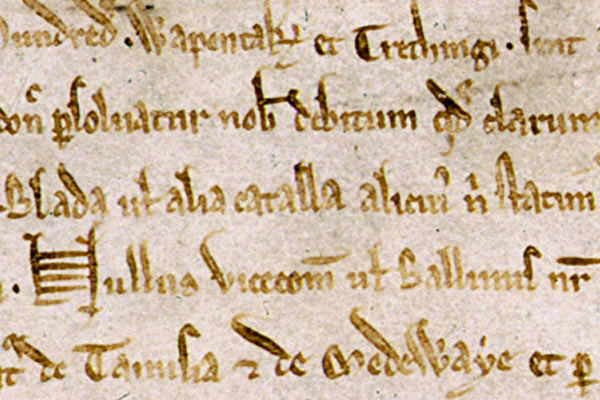 hundred' . Wapentak' et Trethingi . sint
don' persolvatur nob' debitum qd' clarum
Blada ul' alia catalla alicui' n' statim
. Nullus vicecom' ul' Ballivus nr'
de Tamisia ⁊ de Medewaye et p